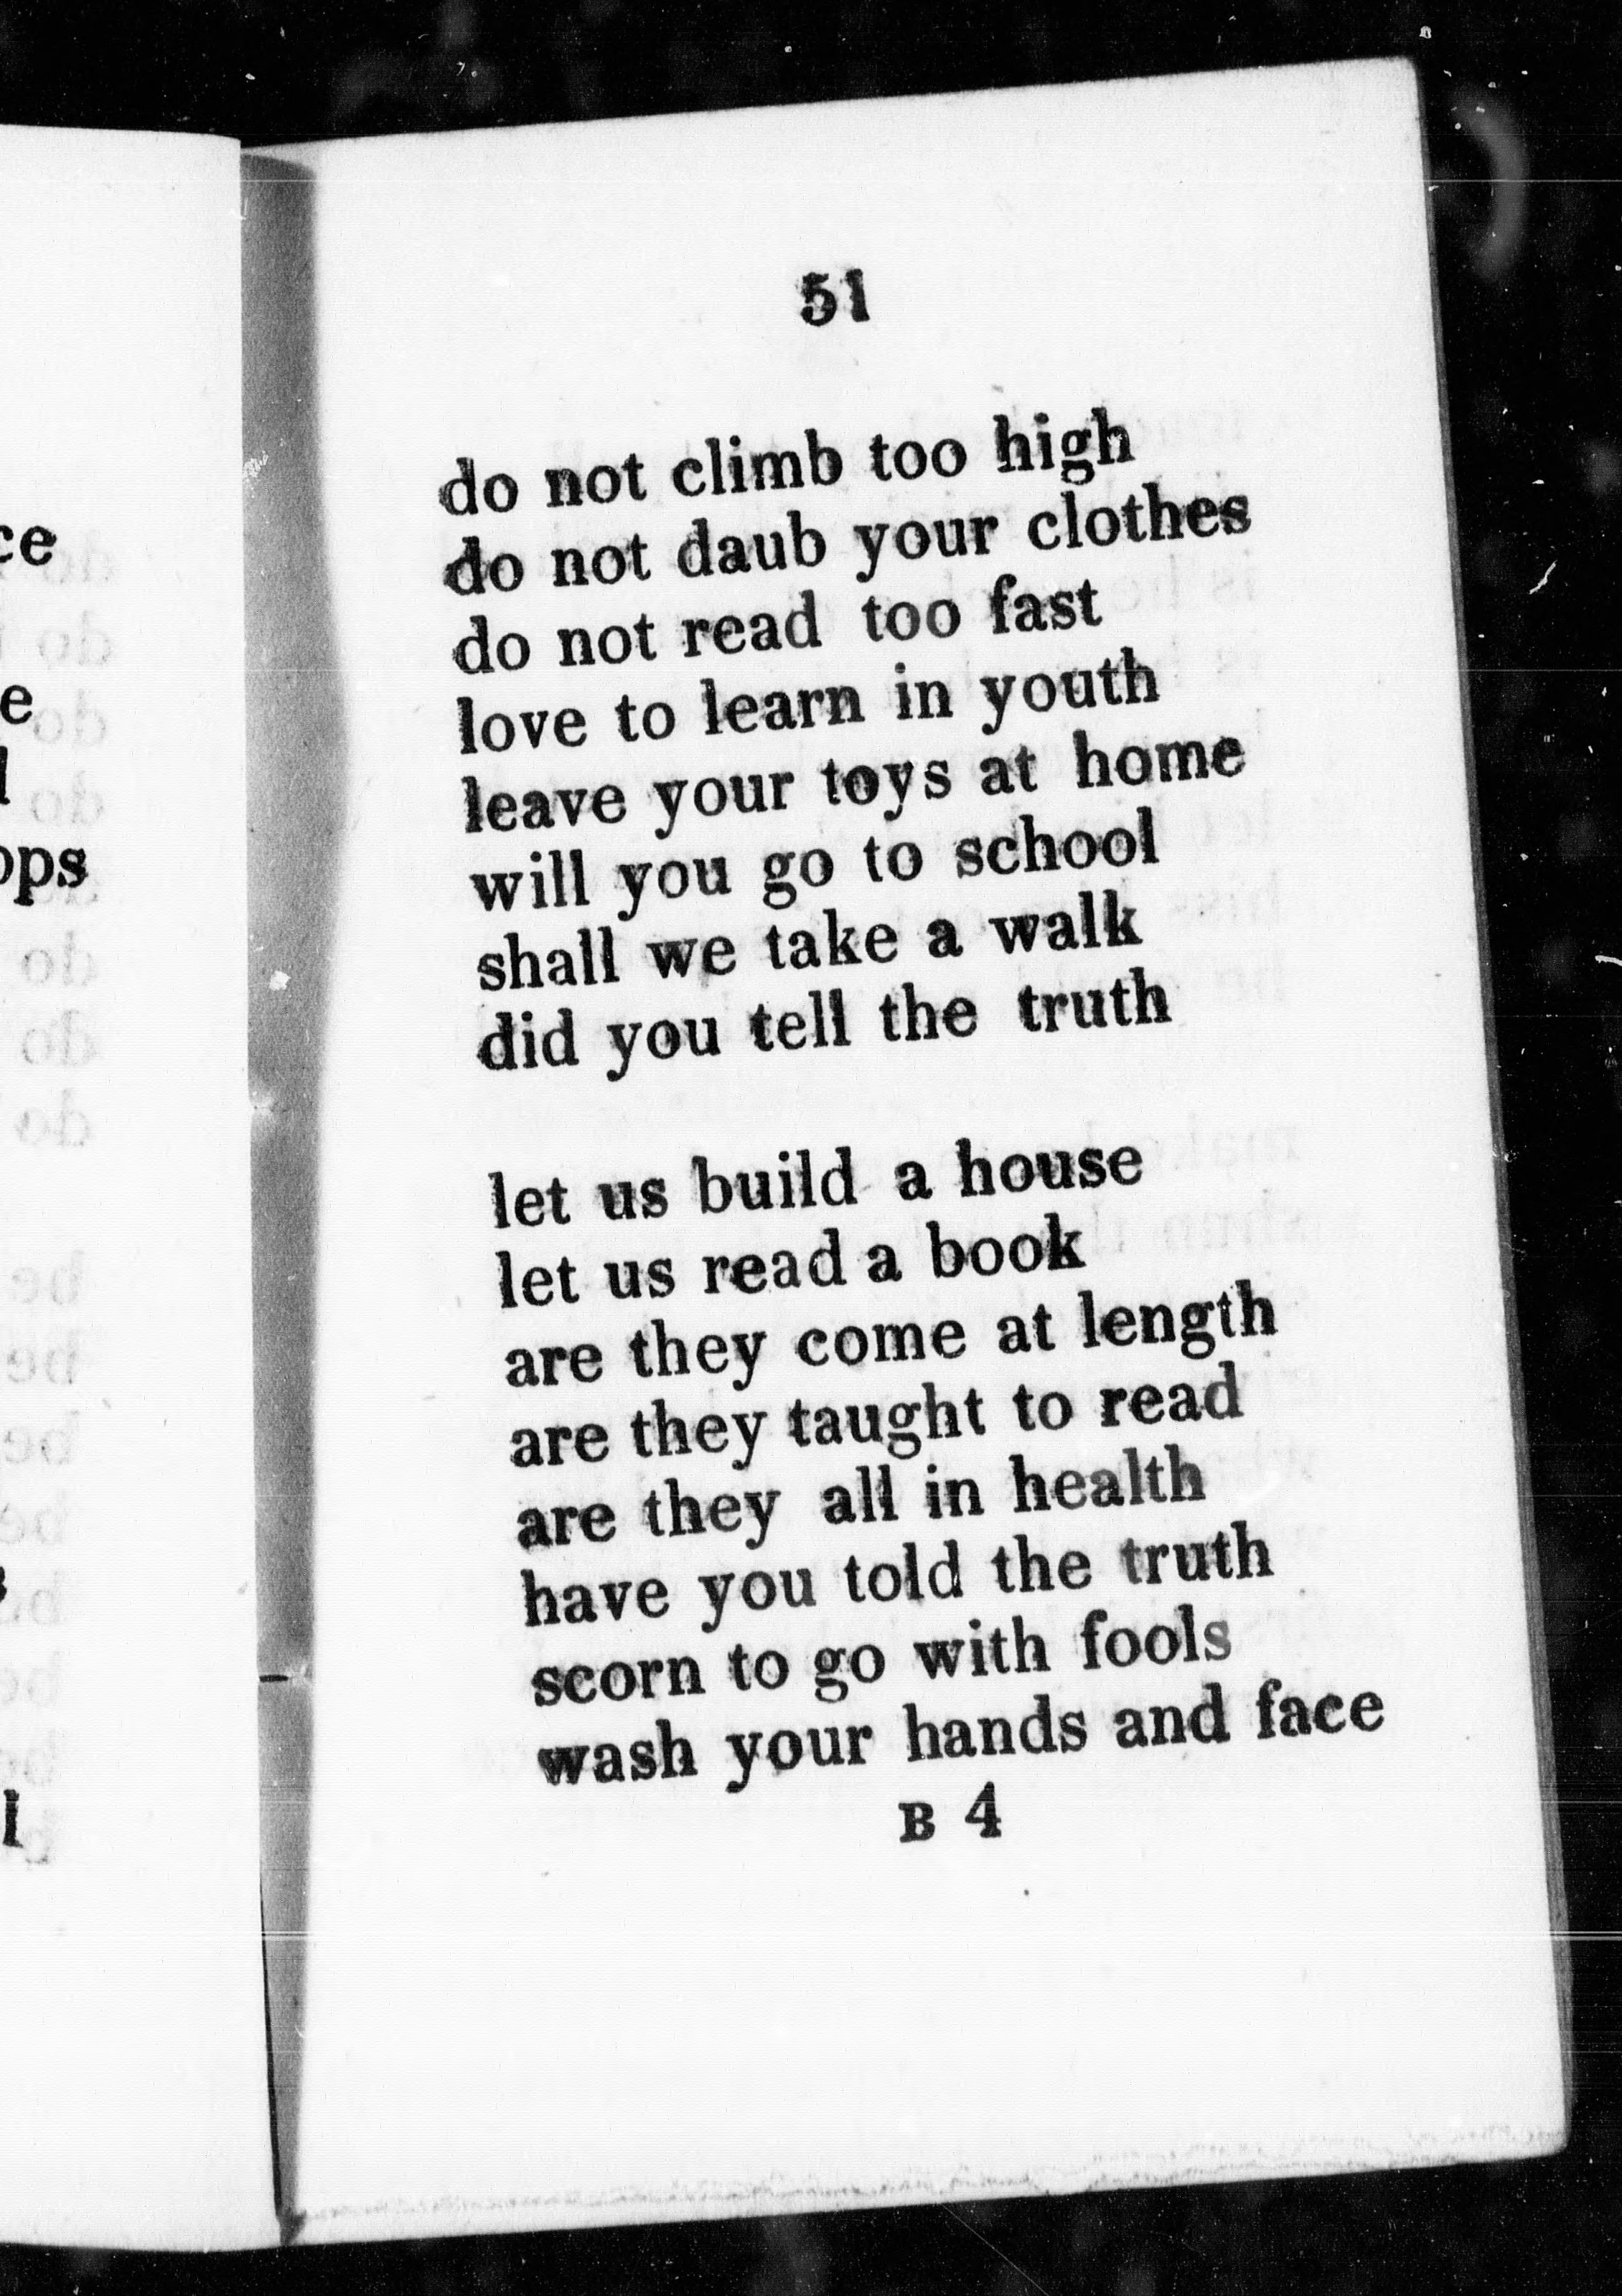 51
do not climb too high
do not daub your clothes
do not read too fast
love to learn in youth
leave your toys at home
will you go to school
shall we take a walk
did you tell the truth
let us build a house
let us read a book
are they come at length
are they taught to read
are they all in health
have you told the truth
scorn to go with fools
wash your hands and face
B 4